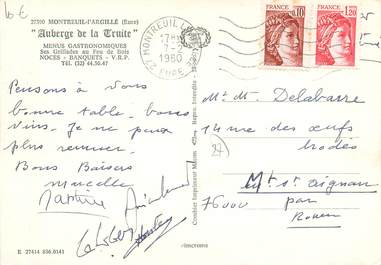 6€
27390 MONTREUIL-l'ARGILLÉ (Eure)
"Auberge de la Truite"
MENUS GASTRONOMIQUES
Ses Grillades au Feu de Bois
NOCES - BANQUETS - V.R.P.
Tél. (32) 44.50.47
27 MONTREUIL L'
7-2
1980
EURE
FRANCE
0,10
FRANCE
1,20
Pensons à vous
bonne table - bons
vins. Je ne peux
plus remuer.
Bons Baisers
Marcelle
Martine
M et M. Delabarre
14 rue des œufs
brodés
27
Mt St Aignan
76000 par
Rouen
Combier Imprimeur Mâcon
E 27414 856.0141